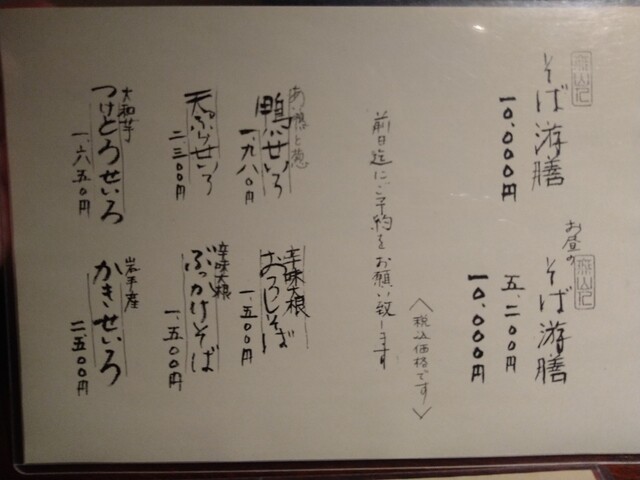 そば游膳
一〇、〇〇〇円
お昼の
そば游膳
五、二〇〇円
一〇、〇〇〇円
〈税込価格です〉
前日迄にご予約をお願い致します
鴨せいろ
一、九八〇円
辛味大根
おろしそば
一、五〇〇円
天ぷらせいろ
二二〇〇円
辛味大根
ぶっかけそば
一、五〇〇円
大和芋
つけとろせいろ
一、六五〇円
岩手産
かきせいろ
二五〇〇円